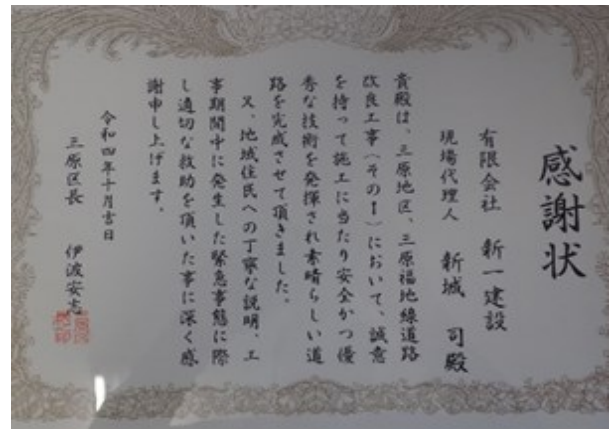 感謝状
有限会社 新一建設
現場代理人 新城 司殿
貴殿は、三原地区、三原福地線道路
改良工事(その1)において、誠意
を持って施工に当たり安全かつ優
秀な技術を発揮され素晴らしい道
路を完成させて頂きました。
又、地域住民への丁寧な説明、工
事期間中に発生した緊急事態に際
し適切な救助を頂いた事に深く感
謝申し上げます。
令和四年十月吉日
三原区長 伊波安志